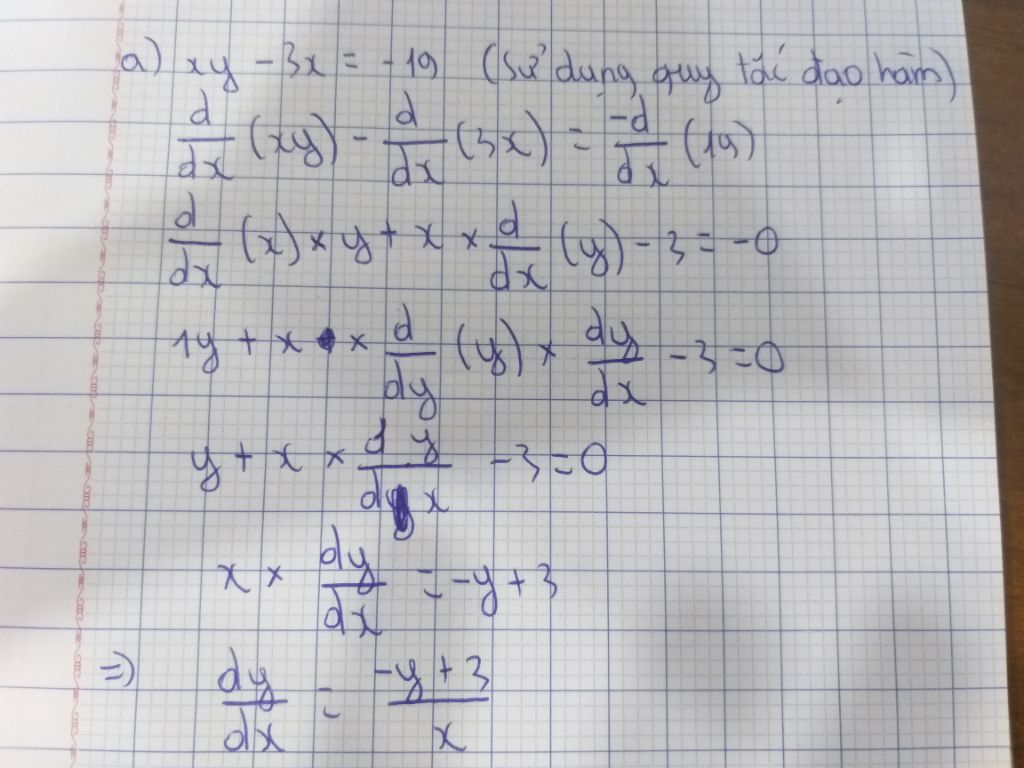 a) xy - 3x = -19 (sử dụng quy tắc đạo hàm)
d/dx (xy) - d/dx (3x) = -d/dx (19)
d/dx (x) × y + x × d/dx (y) - 3 = -0
1y + x × d/dy (y) × dy/dx - 3 = 0
y + x × dy/dx - 3 = 0
x × dy/dx = -y + 3
=> dy/dx = (-y + 3)/x